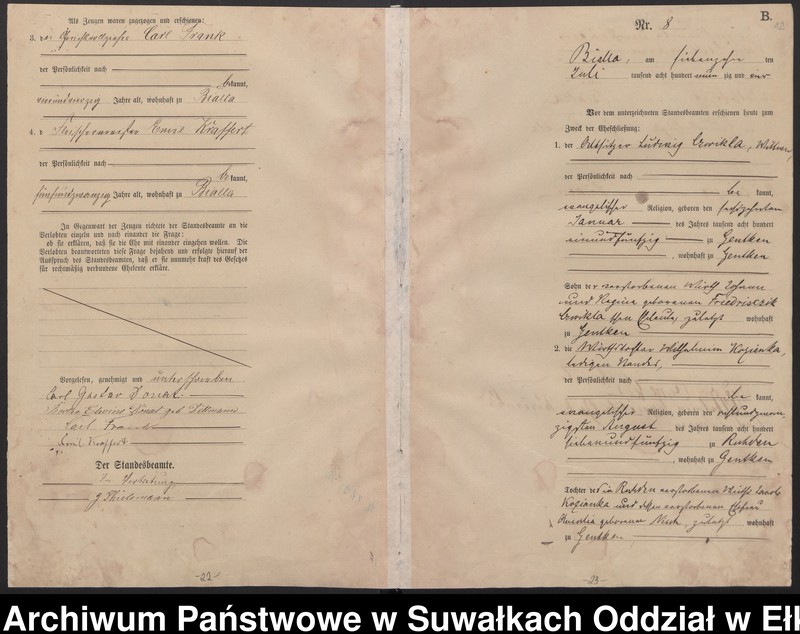 Als Zeugen waren zugezogen und erschienen:
3. der Gerichtsvollzieher Carl Frank
der Persönlichkeit nach
bekannt,
vierundvierzig Jahre alt, wohnhaft zu Bialla
4. der Fleischermeister Emil Kraffert
der Persönlichkeit nach
bekannt,
fünfundzwanzig Jahre alt, wohnhaft zu Bialla
In Gegenwart der Zeugen richtete der Standesbeamte an die
Verlobten einzeln und nach einander die Frage:
ob sie erklären, daß sie die Ehe mit einander eingehen wollen. Die
Verlobten beantworteten diese Frage bejahend und erfolgte hierauf der
Ausspruch des Standesbeamten, daß er sie nunmehr kraft des Gesetzes
für rechtmäßig verbundene Eheleute erkläre.
Vorgelesen, genehmigt und unterschrieben
Carl Gustav Donat
Donat geb.
Carl Frank
Emil Kraffert
Der Standesbeamte.
In Vertretung
Thielemann
-22-
B.
Nr. 8
Bialla, am siebenzehnten
Juli tausend acht hundert neunzig und vier
Vor dem unterzeichneten Standesbeamten erschienen heute zum
Zweck der Eheschließung:
1. der Altsitzer Ludwig Czwikla, Wittwer,
der Persönlichkeit nach
bekannt,
evangelischer Religion, geboren den sechszehnten
Januar des Jahres tausend acht hundert
einundfünfzig zu Gentken
, wohnhaft zu Gentken
Sohn der verstorbenen Wirth Johann
und Regina geborenen Friedriszik
Czwikla'schen Eheleute, zuletzt wohnhaft
zu Gentken
2. die Wirthstochter Wilhelmine Kozianka,
ledigen Standes,
der Persönlichkeit nach
bekannt,
evangelischer Religion, geboren den achtundzwan-
zigsten August des Jahres tausend acht hundert
siebenundfünfzig zu Ruhden
, wohnhaft zu Gentken
Tochter des in Ruhden verstorbenen Wirths Jacob
Kozianka und dessen verstorbenen Ehefrau
geborenen, zuletzt wohnhaft
zu Gentken
-23-
Archiwum Państwowe w Suwałkach Oddział w Ełk